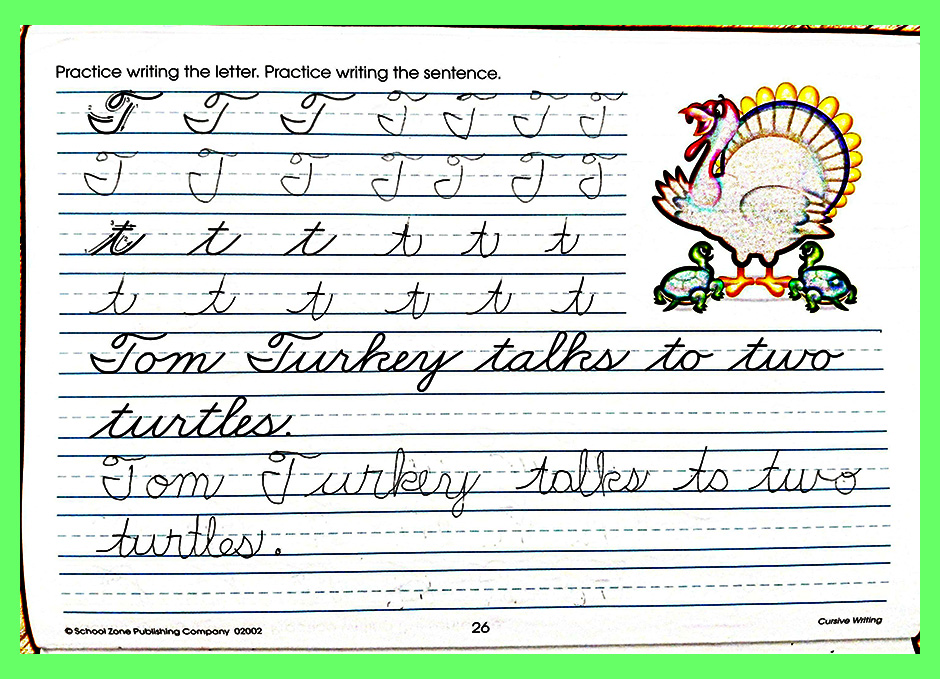 Practice writing the letter. Practice writing the sentence.
T T T T T T T
T T T T T T T
t t t t t t
t t t t t t
Tom Turkey talks to two
turtles.
Tom Turkey talks to two
turtles.
© School Zone Publishing Company 02002
26
Cursive Writing